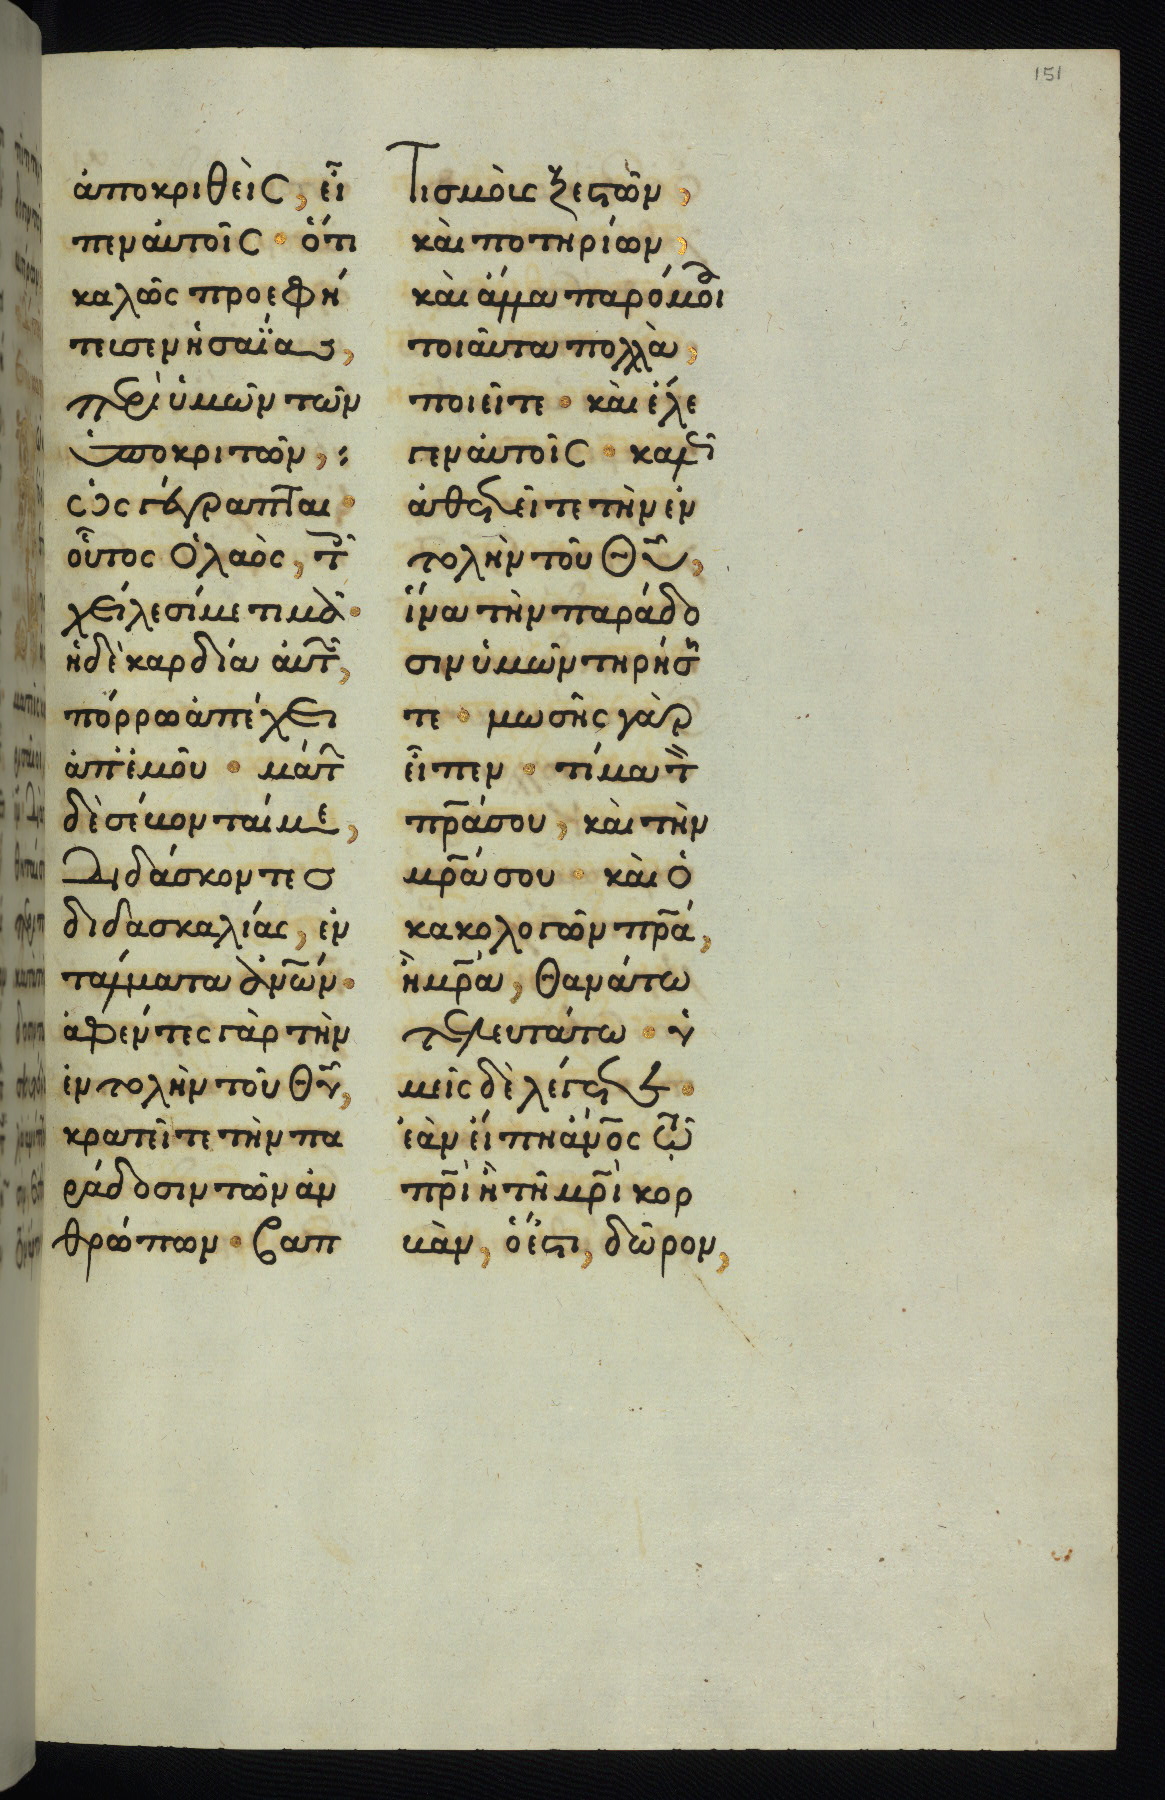 151
ἀποκριθεὶς, εἶ
πεν αὐτοῖς · ὅτι
καλῶς προεφή
τευσεν ἡσαΐας,
περὶ ὑμῶν τῶν
ὑποκριτῶν, :
ὡς γέγραπται ·
οὗτος ὁ λαὸς, τοῖς
χείλεσί με τιμᾶ ·
ἡ δὲ καρδία αὐτῶν,
πόρρω ἀπέχει
ἀπ' ἐμοῦ · μάτην
δὲ σέβονταί με,
διδάσκοντες
διδασκαλίας, ἐν
τάλματα ἀνῶν ·
ἀφέντες γὰρ τὴν
ἐντολὴν τοῦ Θυ,
κρατεῖτε τὴν πα
ράδοσιν τῶν ἀν
θρώπων · βαπ
τισμοὺς ξεστῶν,
καὶ ποτηρίων,
καὶ ἄλλα παρόμοι
τοιαῦτα πολλὰ,
ποιεῖτε · καὶ ἔλε
γεν αὐτοῖς · καλῶς
ἀθετεῖτε τὴν ἐν
τολὴν τοῦ Θυ,
ἵνα τὴν παράδο
σιν ὑμῶν τηρήση
τε · μωσῆς γὰρ
εἶπεν · τίμα τὸν
πρα σου, καὶ τὴν
μρα σου · καὶ ὁ
κακολογῶν πρα,
ἢ μρα, θανάτω
τελευτάτω · ὑ
μεῖς δὲ λέγετε ·
ἐὰν εἴπη ἄνος τῶ
πρὶ ἢ τῆ μρὶ κορ
βὰν, ὅ ἐστι, δῶρον,